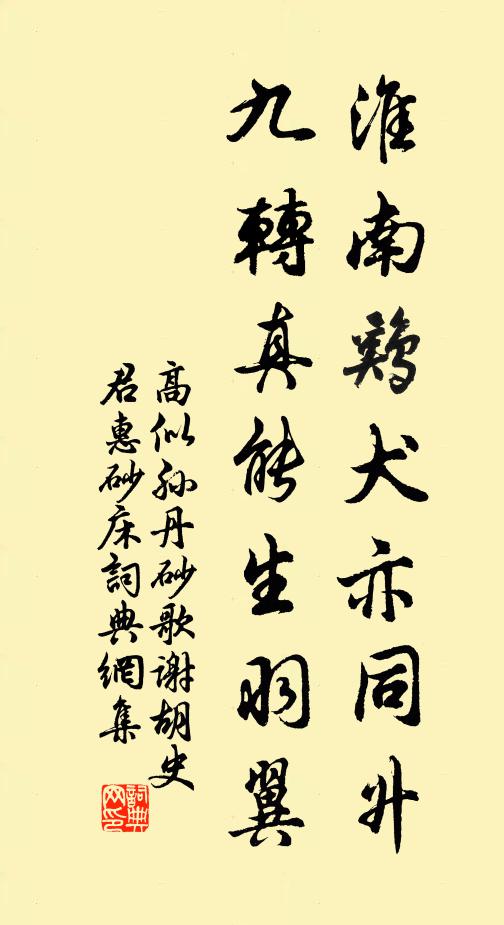 淮南鷄犬亦同升
九轉真能生羽翼
高似孫丹砂歌謝胡史
君惠砂床詞典網集
詞典
网印